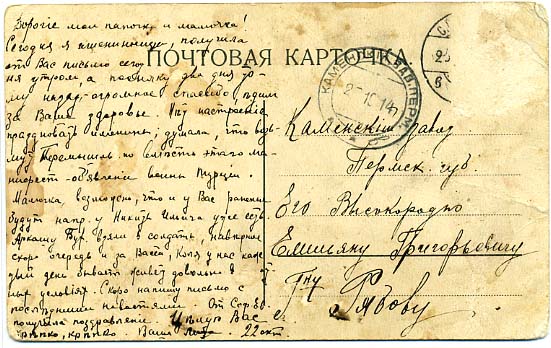 Дорогіе мои папочка и мамочка!
Сегодня я именинница, получила
отъ Васъ письмо сего-
дня утромъ, а посылку два дня то-
му назадъ – огромное спасибо пдимъ
за Ваше здоровье. Нѣтъ настроенія
праздновать именины, думала, что возь-
мутъ Перемышль но вмѣсто этого ма-
нифестъ – объявленіи войны Турціи.
Мамочка, возможно, что и у Васъ раненые
будутъ напр. у Никиты уже есть.
Аркашу Бур. взяли в солдаты, навѣрное
скоро очередь и за Васей. Коля у насъ каж-
дый день бываетъ живетъ довольно в
ныхъ условіяхъ. Скоро напишу письмо с
послѣдними новостями. От
получила поздравленія. Цѣлую Васъ
крѣпко, крѣпко. Ваша 22 окт.
ПОЧТОВАЯ КАРТОЧКА
КАМЕНСКІЙ ЗАВ. ПЕРМ.
2 10 14
Каменскій завод
Пермск. губ.
Его Высокородію
Емильяну Григорьевичу
Гну Рябову